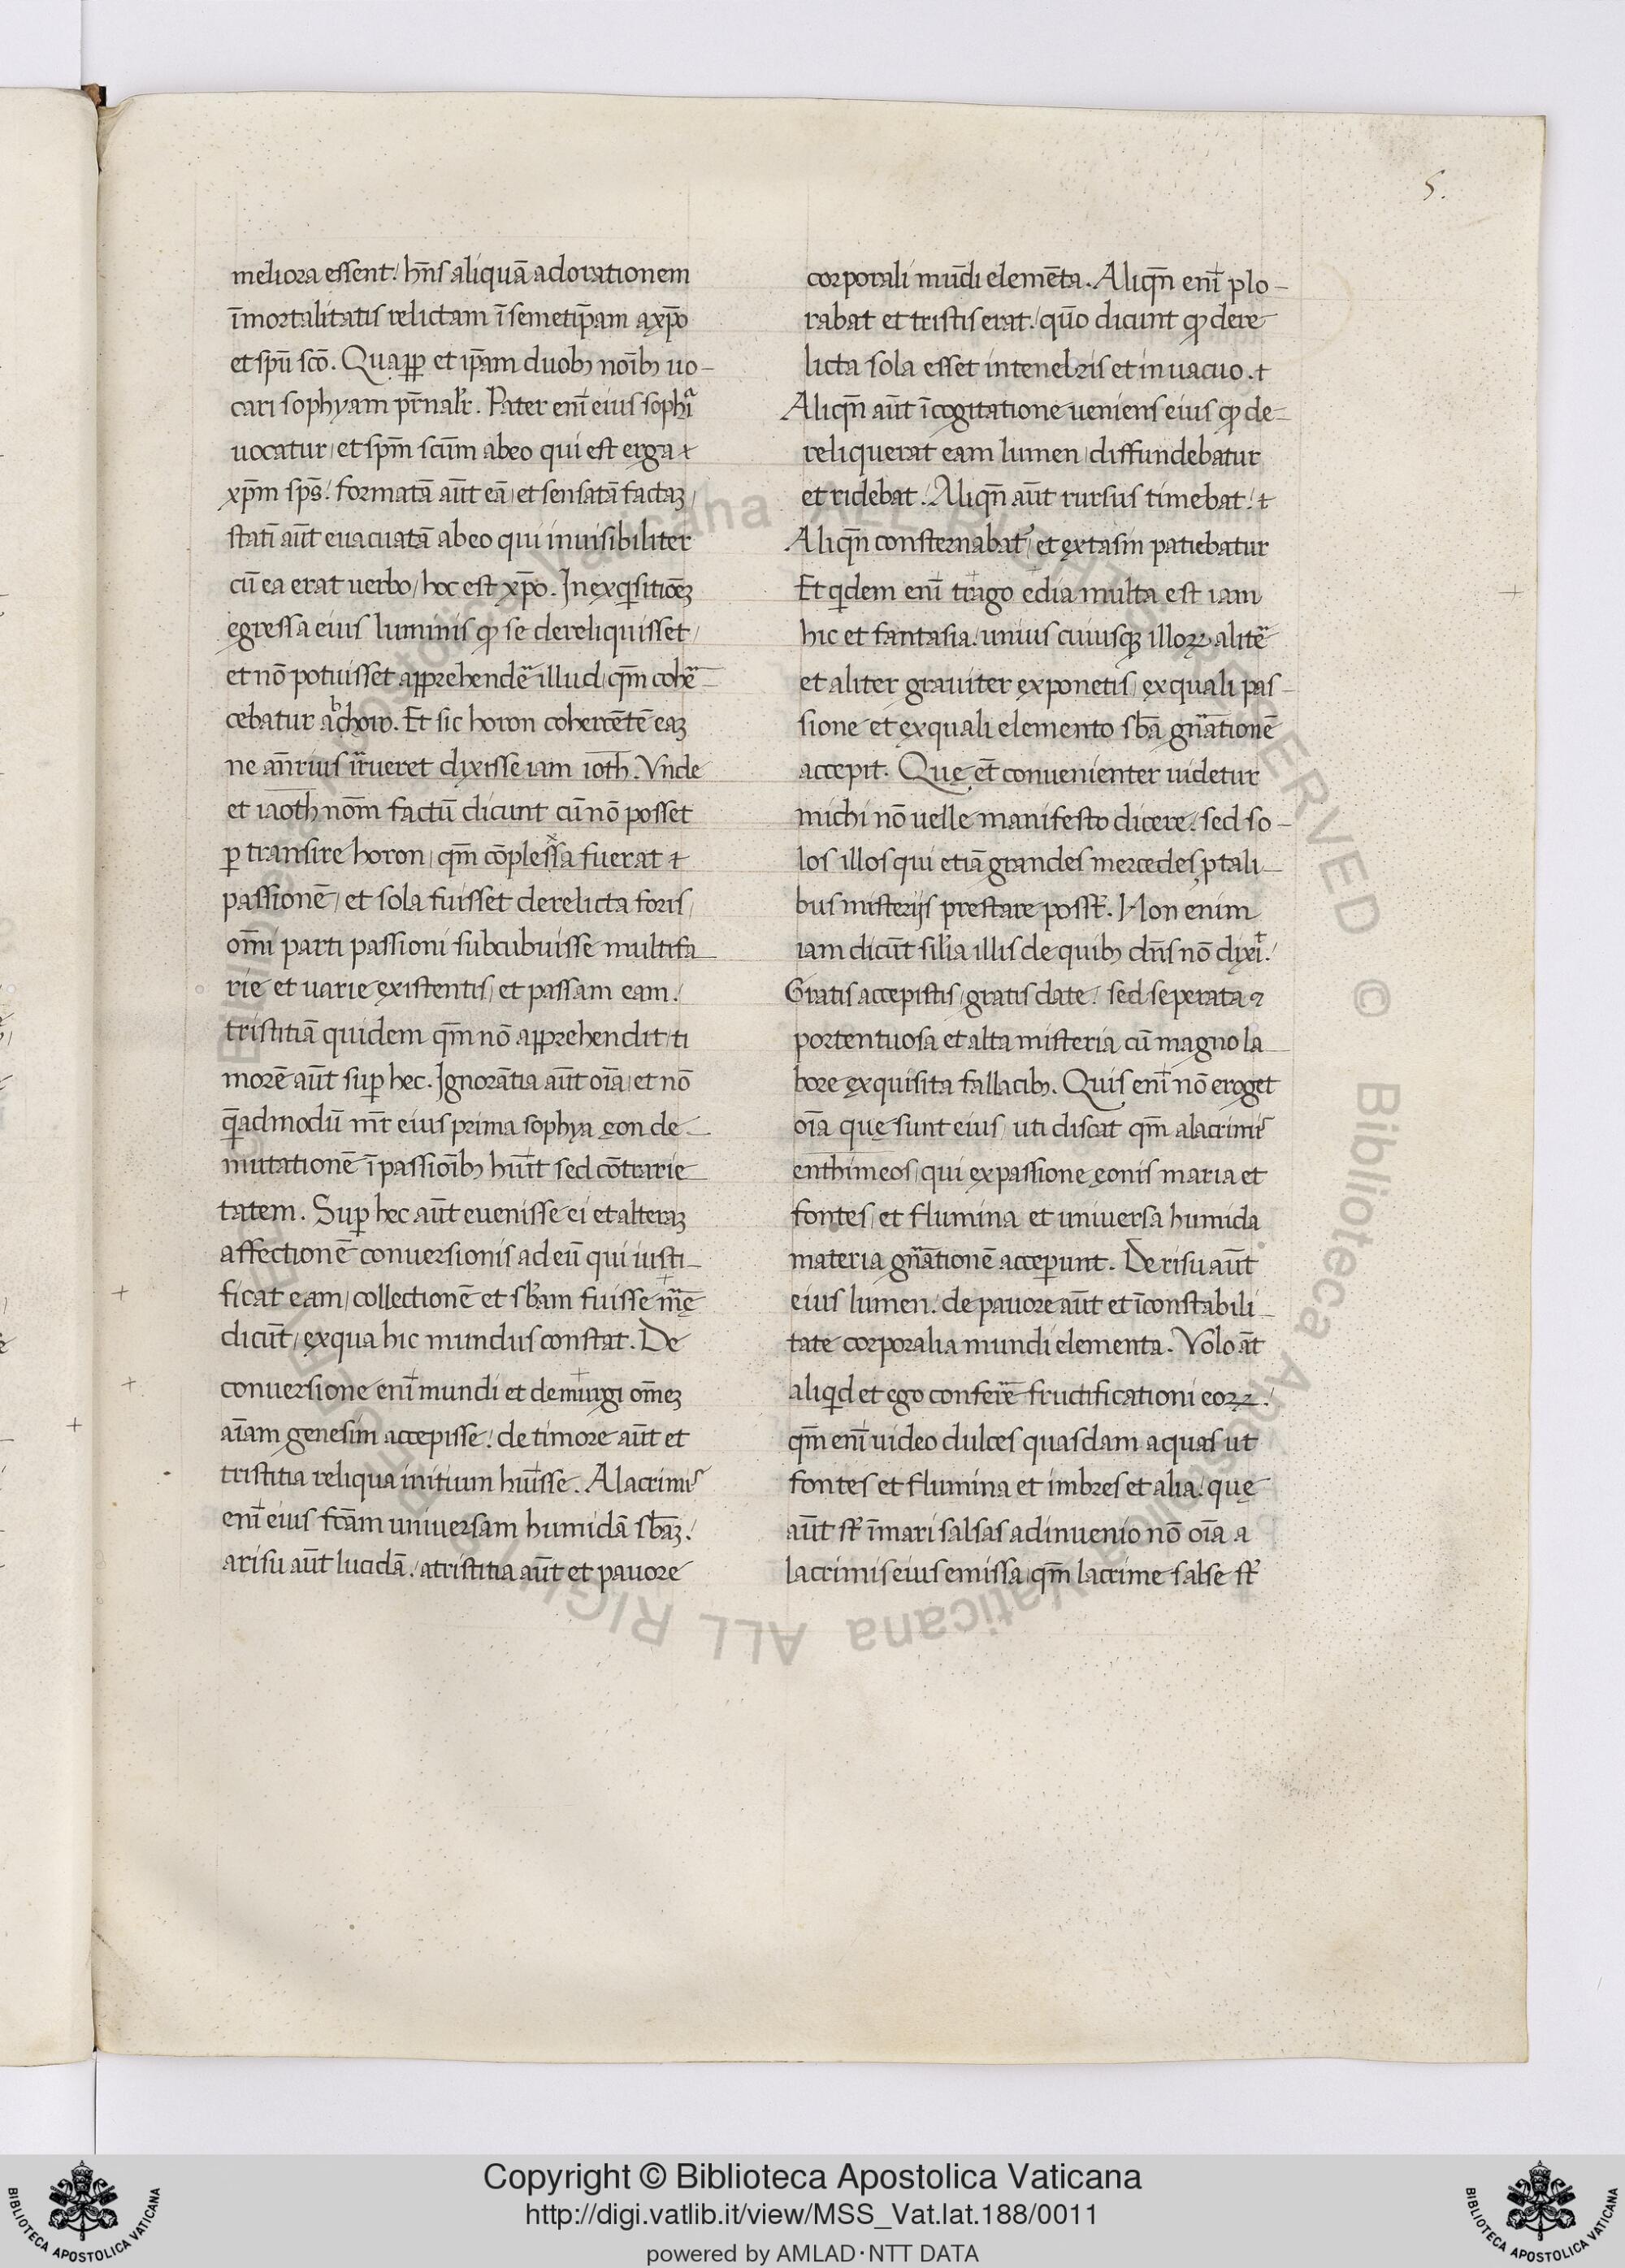 5.
meliora essent. hn̄s aliquā adorationem
īmortalitatis relictam ī semetip̄am a xp̄o
et spū scō. Quap̱p̱ et ip̄am duobꝫ noībꝫ uo-
cari sophyam pr̄nalr̄. Pater enī eius sophia
uocatur, et spm̄ scūm ab eo qui est erga ⁊
xp̄m sps̄. formatā aūt eā, et sensatā factaꝫ,
statī aūt euacuatā ab eo qui inuisibiliter
cū ea erat uerbo, hoc est xp̄o. In exqisitiōeꝫ
egressa eius luminis ꝙ se dereliquisset,
et nō potuisset apprehendē illud, qm̄ cohē-
cebatur ab chow. Et sic horon cohercētē eaꝫ
ne an̄rius irrueret dixisse iam ioth. Vnde
et iaoth nom̄ factū dicunt cū nō posset
ꝑ transire horon, qm̄ cōplexa fuerat ⁊
passionē, et sola fuisset derelicta foris,
om̄i parti passioni subcubuisse multifa-
rie et uarie existentis, et passam eam.
tristitiā quidem qm̄ nō apprehendit, ti
morē aūt suꝑ hec. Ignorātia aūt oīa, et nō
q̄admodū mr̄ eius prima sophya ęon de-
mutationē ī passioībꝫ hūit sed cōtrarie-
tatem. Suꝑ hec aūt euenisse ei et alteraꝫ
affectionē conuersionis ad eū qui iusti-
ficat eam, collectionē et sb̄am fuisse mr̄ę
dicūt, ex qua hic mundus constat. De
conuersione enī mundi et demiurgi om̄eꝫ
aīam genesim accepisse. de timore aūt et
tristitia reliqua initium hūisse. A lacrimis
enī eius fcām uniuersam humidā sb̄aꝫ.
a risu aūt lucidā. a tristitia aūt et pauore
corporali mūdi elemēta. Aliqn̄ enī plo-
rabat et tristis erat. quō dicunt ꝙ dere-
licta sola esset in tenebris et in uacuo. ⁊
Aliqn̄ aūt ī cogitatione ueniens eius ꝙ de-
reliquerat eam lumen, diffundebatur
et ridebat. Aliqn̄ aūt rursus timebat. ⁊
Aliqn̄ consternabat᷑, et extasim patiebatur
Et qdem enī tragoedia multa est iam
hic et fantasia. unius cuiusqꝫ illoꝝ alitē
et aliter grauiter exponetis, ex quali pas-
sione et ex quali elemento sb̄a gn̄ationē
accepit. Quę et̄ conuenienter uidetur
michi nō uelle manifesto dicere. sed so-
los illos qui etiā grandes mercedes ꝑ tali-
bus misterijs prestare posst̄. Non enim
iam dicūt silīa illis de quibꝫ dn̄s nō dixit.
Gratis accepistis, gratis date. sed seperata ⁊
portentuosa et alta misteria cū magno la-
bore exquisita fallacibꝫ. Quis enī nō eroget
oīa quę sunt eius, uti discat qm̄ a lacrimis
enthimeos, qui ex passione ęonis maria et
fontes, et flumina et uniuersa humida
materia gn̄ationē acceꝑunt. De risu aūt
eius lumen. de pauore aūt et īconstabili-
tate corporalia mundi elementa. Volo aūt
aliqd et ego conferre fructificationi eoꝝ.
qm̄ enī uideo dulces quasdam aquas ut
fontes et flumina et imbres et alia. quę
aūt st̄ ī mari salsas adinuenio nō oīa a
lacrimis eius emissa, qm̄ lacrime salse st̄
Copyright © Biblioteca Apostolica Vaticana
http://digi.vatlib.it/view/MSS_Vat.lat.188/0011
powered by AMLAD·NTT DATA
BIBLIOTECA APOSTOLICA VATICANA
BIBLIOTECA APOSTOLICA VATICANA